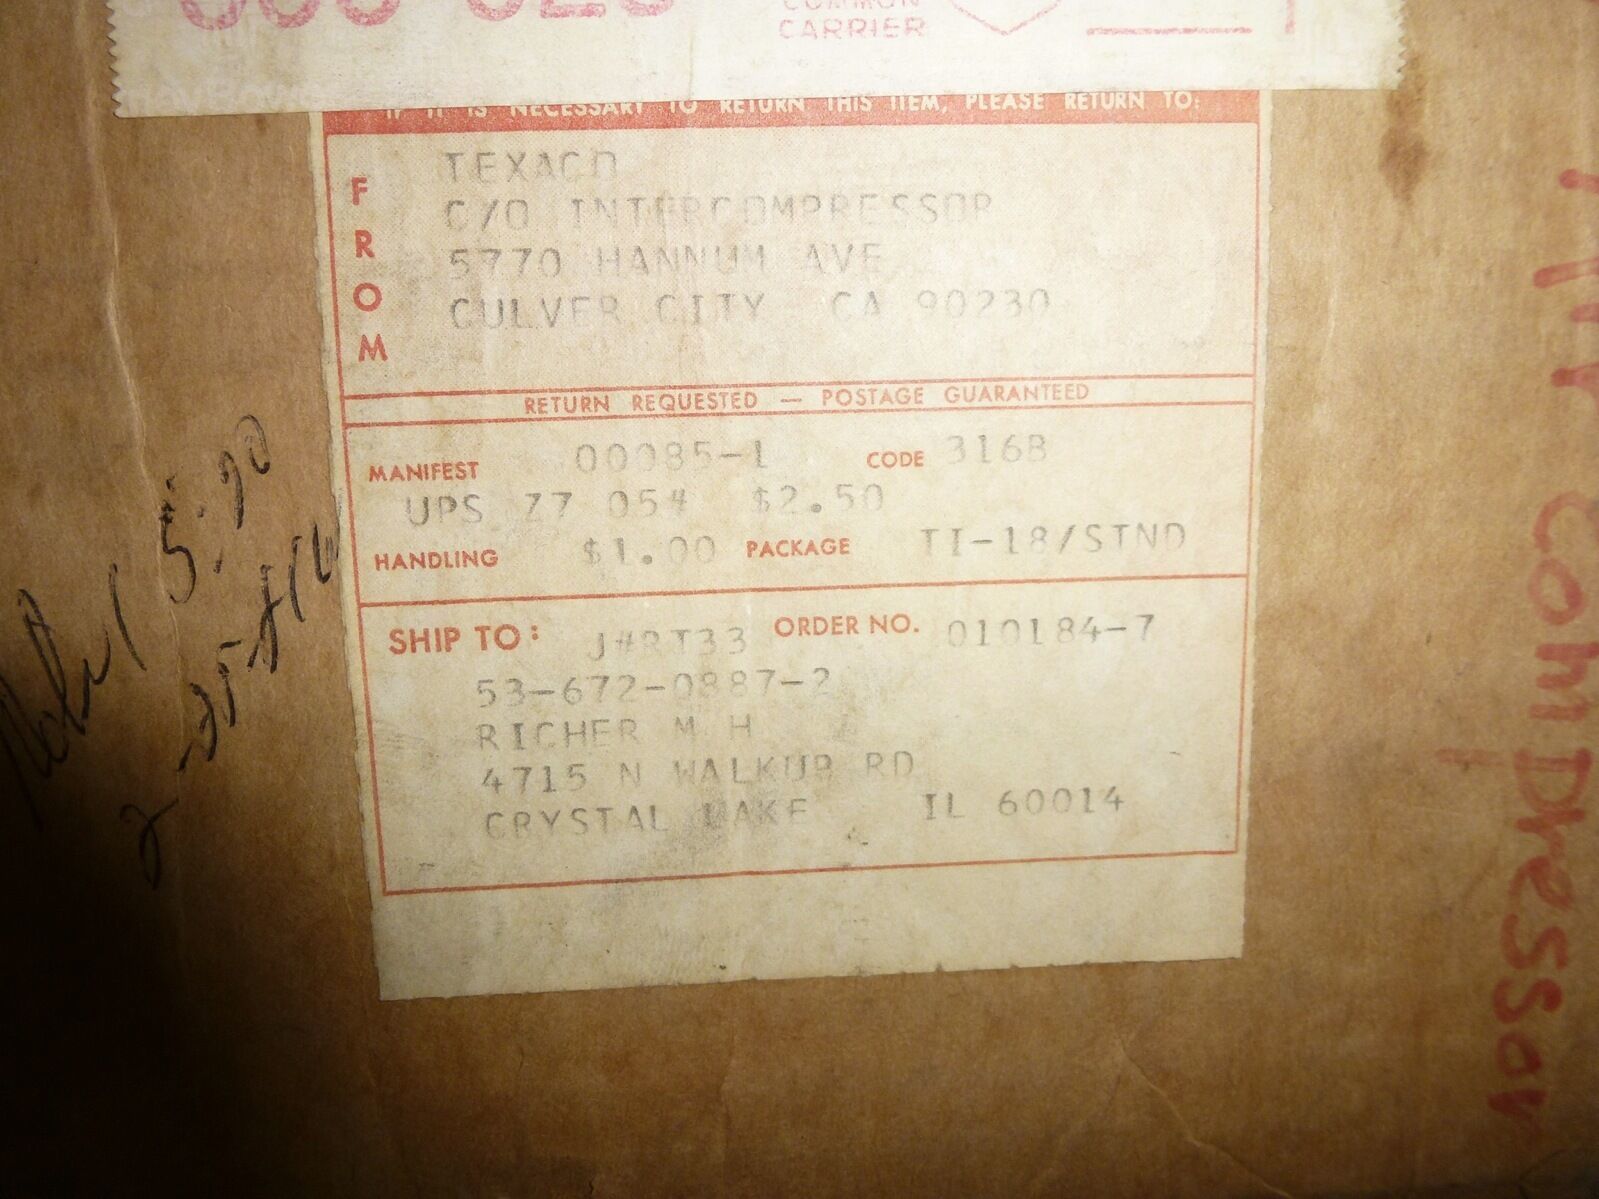 COMMON
CARRIER
IF IT IS NECESSARY TO RETURN THIS ITEM, PLEASE RETURN TO:
FROM
TEXACO
C/O INTERCOMPRESSOR
5770 HANNUM AVE
CULVER CITY CA 90230
RETURN REQUESTED — POSTAGE GUARANTEED
MANIFEST 00085-1 CODE 316B
UPS Z7 054 $2.50
HANDLING $1.00 PACKAGE TI-18/STND
SHIP TO: J#RT33 ORDER NO. 010184-7
53-672-0887-2
RICHER M H
4715 N WALKUP RD
CRYSTAL LAKE IL 60014
Air ComPressor